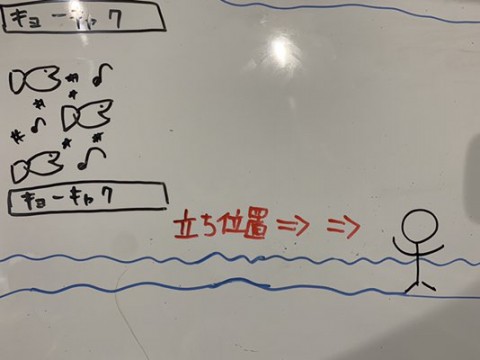 キョーキャク
キョーキャク
立ち位置⇒ ⇒